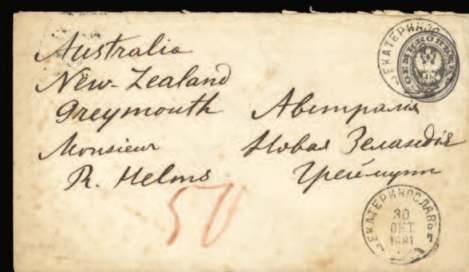 Australia
New-Zealand
Greymouth
Monsieur
R. Helms
Австралия
Новая Зеландія
Греймутъ
50
ЕКАТЕРИНОСЛАВЪ
30
ОКТ.
1881
ЕКАТЕРИНОС